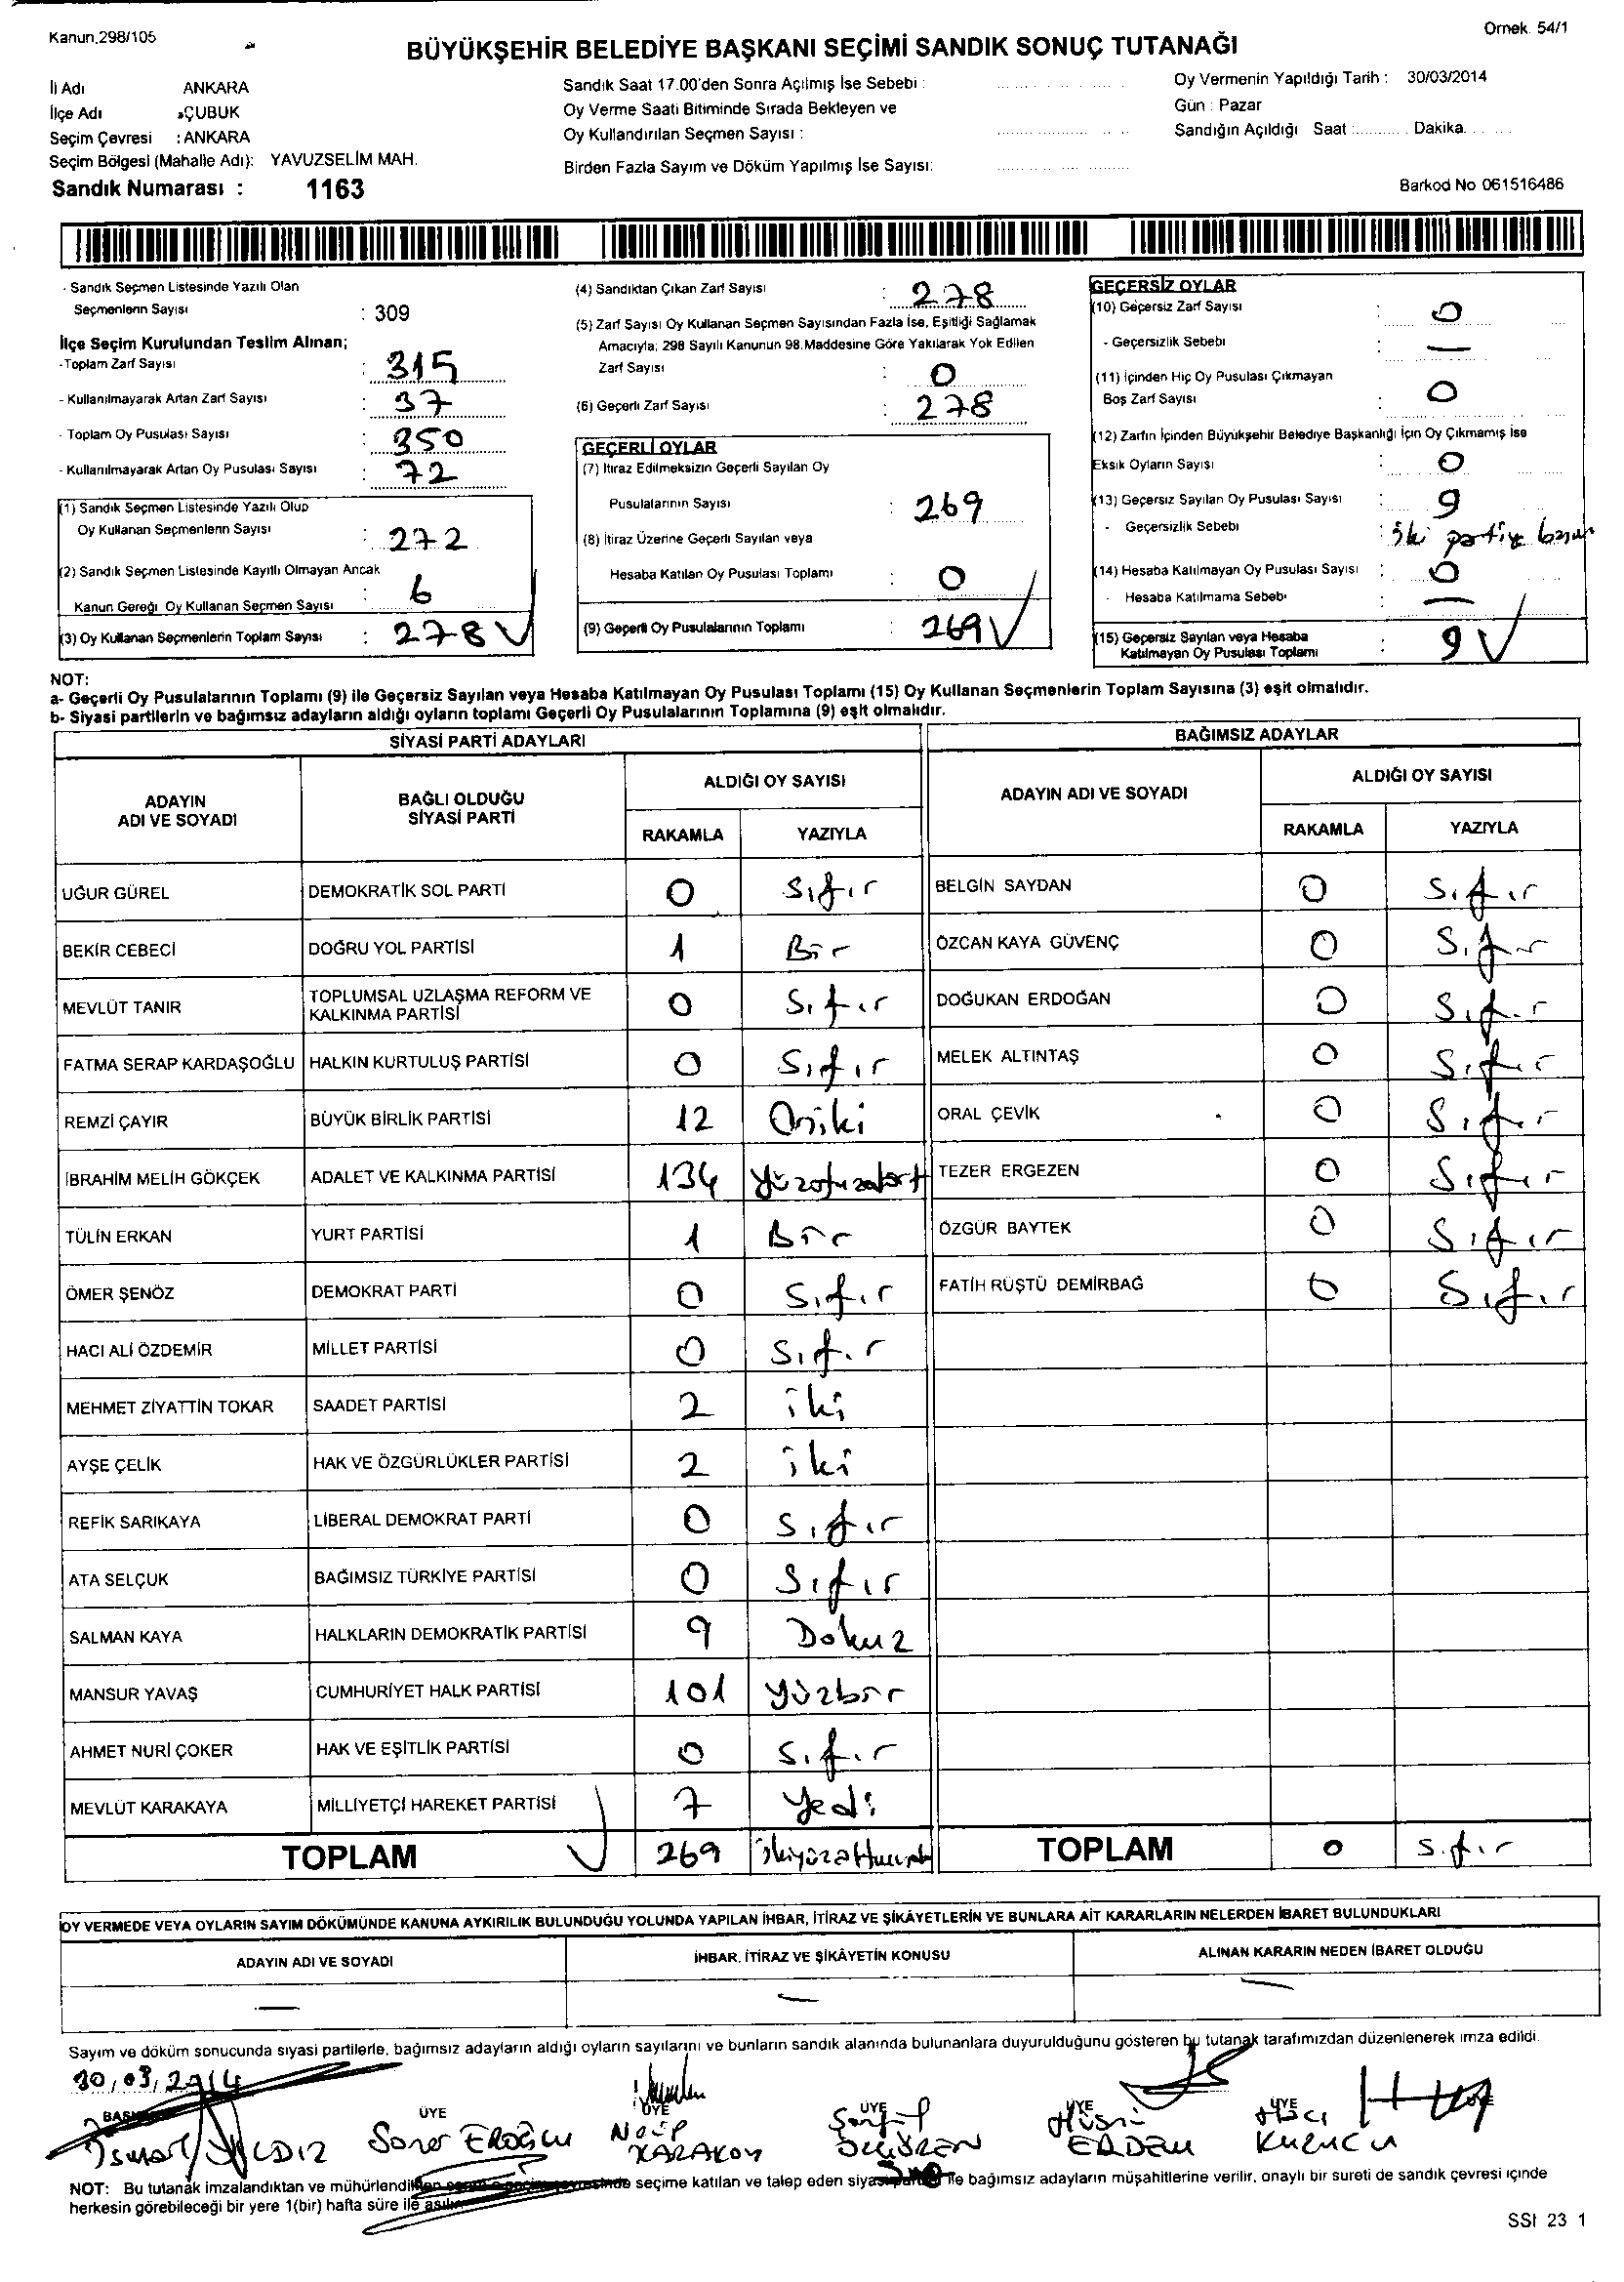 Kanun.298/105
Örnek. 54/1
BÜYÜKŞEHİR BELEDİYE BAŞKANI SEÇİMİ SANDIK SONUÇ TUTANAĞI
İli Adı ANKARA
İlçe Adı :ÇUBUK
Seçim Çevresi : ANKARA
Seçim Bölgesi (Mahalle Adı): YAVUZSELİM MAH.
Sandık Numarası : 1163
Sandık Saat 17.00'den Sonra Açılmış İse Sebebi :
Oy Verme Saati Bitiminde Sırada Bekleyen ve
Oy Kullandırılan Seçmen Sayısı :
Birden Fazla Sayım ve Döküm Yapılmış İse Sayısı:
Oy Vermenin Yapıldığı Tarih : 30/03/2014
Gün : Pazar
Sandığın Açıldığı Saat :........... Dakika.......
Barkod No 061516486
- Sandık Seçmen Listesinde Yazılı Olan
Seçmenlerin Sayısı : 309
İlçe Seçim Kurulundan Teslim Alınan;
-Toplam Zarf Sayısı : 315
- Kullanılmayarak Artan Zarf Sayısı : 37
- Toplam Oy Pusulası Sayısı : 350
- Kullanılmayarak Artan Oy Pusulası Sayısı : 72
(1) Sandık Seçmen Listesinde Yazılı Olup
Oy Kullanan Seçmenlerin Sayısı : 272
(2) Sandık Seçmen Listesinde Kayıtlı Olmayan Ancak
Kanun Gereği Oy Kullanan Seçmen Sayısı : 6
(3) Oy Kullanan Seçmenlerin Toplam Sayısı : 278
(4) Sandıktan Çıkan Zarf Sayısı : 278
(5) Zarf Sayısı Oy Kullanan Seçmen Sayısından Fazla İse, Eşitliği Sağlamak
Amacıyla; 298 Sayılı Kanunun 98.Maddesine Göre Yakılarak Yok Edilen
Zarf Sayısı : 0
(6) Geçerli Zarf Sayısı : 278
GEÇERLİ OYLAR
(7) İtiraz Edilmeksizin Geçerli Sayılan Oy
Pusulalarının Sayısı : 269
(8) İtiraz Üzerine Geçerli Sayılan veya
Hesaba Katılan Oy Pusulası Toplamı : 0
(9) Geçerli Oy Pusulalarının Toplamı : 269
GEÇERSİZ OYLAR
(10) Geçersiz Zarf Sayısı : 0
- Geçersizlik Sebebi : —
(11) İçinden Hiç Oy Pusulası Çıkmayan
Boş Zarf Sayısı : 0
(12) Zarfın İçinden Büyükşehir Belediye Başkanlığı İçin Oy Çıkmamış ise
Eksik Oyların Sayısı : 0
(13) Geçersiz Sayılan Oy Pusulası Sayısı : 9
- Geçersizlik Sebebi : iki partiye
(14) Hesaba Katılmayan Oy Pusulası Sayısı : 0
- Hesaba Katılmama Sebebi : —
(15) Geçersiz Sayılan veya Hesaba
Katılmayan Oy Pusulası Toplamı : 9
NOT:
a- Geçerli Oy Pusulalarının Toplamı (9) ile Geçersiz Sayılan veya Hesaba Katılmayan Oy Pusulası Toplamı (15) Oy Kullanan Seçmenlerin Toplam Sayısına (3) eşit olmalıdır.
b- Siyasi partilerin ve bağımsız adayların aldığı oyların toplamı Geçerli Oy Pusulalarının Toplamına (9) eşit olmalıdır.
SİYASİ PARTİ ADAYLARI
ADAYIN ADI VE SOYADI BAĞLI OLDUĞU SİYASİ PARTİ ALDIĞI OY SAYISI RAKAMLA YAZIYLA
UĞUR GÜREL DEMOKRATİK SOL PARTİ 0 Sıfır
BEKİR CEBECİ DOĞRU YOL PARTİSİ 1 Bir
MEVLÜT TANIR TOPLUMSAL UZLAŞMA REFORM VE KALKINMA PARTİSİ 0 Sıfır
FATMA SERAP KARDAŞOĞLU HALKIN KURTULUŞ PARTİSİ 0 Sıfır
REMZİ ÇAYIR BÜYÜK BİRLİK PARTİSİ 12 Oniki
İBRAHİM MELİH GÖKÇEK ADALET VE KALKINMA PARTİSİ 134 Yüzotuzdört
TÜLİN ERKAN YURT PARTİSİ 1 Bir
ÖMER ŞENÖZ DEMOKRAT PARTİ 0 Sıfır
HACI ALİ ÖZDEMİR MİLLET PARTİSİ 0 Sıfır
MEHMET ZİYATTİN TOKAR SAADET PARTİSİ 2 iki
AYŞE ÇELİK HAK VE ÖZGÜRLÜKLER PARTİSİ 2 iki
REFİK SARIKAYA LİBERAL DEMOKRAT PARTİ 0 Sıfır
ATA SELÇUK BAĞIMSIZ TÜRKİYE PARTİSİ 0 Sıfır
SALMAN KAYA HALKLARIN DEMOKRATİK PARTİSİ 9 Dokuz
MANSUR YAVAŞ CUMHURİYET HALK PARTİSİ 101 Yüzbir
AHMET NURİ ÇOKER HAK VE EŞİTLİK PARTİSİ 0 Sıfır
MEVLÜT KARAKAYA MİLLİYETÇİ HAREKET PARTİSİ 7 Yedi
TOPLAM 269
BAĞIMSIZ ADAYLAR
ADAYIN ADI VE SOYADI ALDIĞI OY SAYISI RAKAMLA YAZIYLA
BELGİN SAYDAN 0 Sıfır
ÖZCAN KAYA GÜVENÇ 0 Sıfır
DOĞUKAN ERDOĞAN 0 Sıfır
MELEK ALTINTAŞ 0 Sıfır
ORAL ÇEVİK 0 Sıfır
TEZER ERGEZEN 0 Sıfır
ÖZGÜR BAYTEK 0 Sıfır
FATİH RÜŞTÜ DEMİRBAĞ 0 Sıfır
TOPLAM 0 Sıfır
OY VERMEDE VEYA OYLARIN SAYIM DÖKÜMÜNDE KANUNA AYKIRILIK BULUNDUĞU YOLUNDA YAPILAN İHBAR, İTİRAZ VE ŞİKÂYETLERİN VE BUNLARA AİT KARARLARIN NELERDEN İBARET BULUNDUKLARI
ADAYIN ADI VE SOYADI İHBAR, İTİRAZ VE ŞİKÂYETİN KONUSU ALINAN KARARIN NEDEN İBARET OLDUĞU
— — —
Sayım ve döküm sonucunda siyasi partilerle, bağımsız adayların aldığı oyların sayılarını ve bunların sandık alanında bulunanlara duyurulduğunu gösteren bu tutanak tarafımızdan düzenlenerek imza edildi.
30/03/2014
ÜYE ÜYE ÜYE ÜYE ÜYE
İsmail YILDIZ Soner EROĞLU KARAKOY ERDEM Hacı KURUCU
NOT: Bu tutanak imzalandıktan ve mühürlendikten seçime katılan ve talep eden ile bağımsız adayların müşahitlerine verilir, onaylı bir sureti de sandık çevresi içinde
herkesin görebileceği bir yere 1(bir) hafta süre ile
SSI 23 1